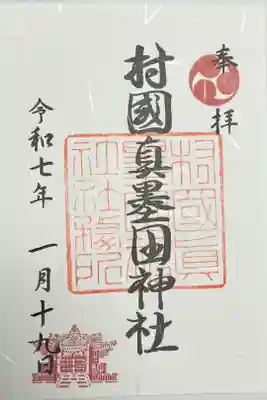 奉拝
村國真墨田神社
令和七年 一月十九日
村國眞墨田神社務所